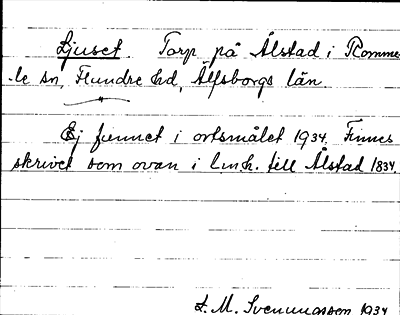 Ljuset. Torp på Ålstad i Romme-
le sn, Flundre hd, Älfsborgs län.
Ej funnet i ortsmålet 1934. Finnes
skrivet som ovan i l.m.h. till Ålstad 1834.
L. M. Svenungsson 1934